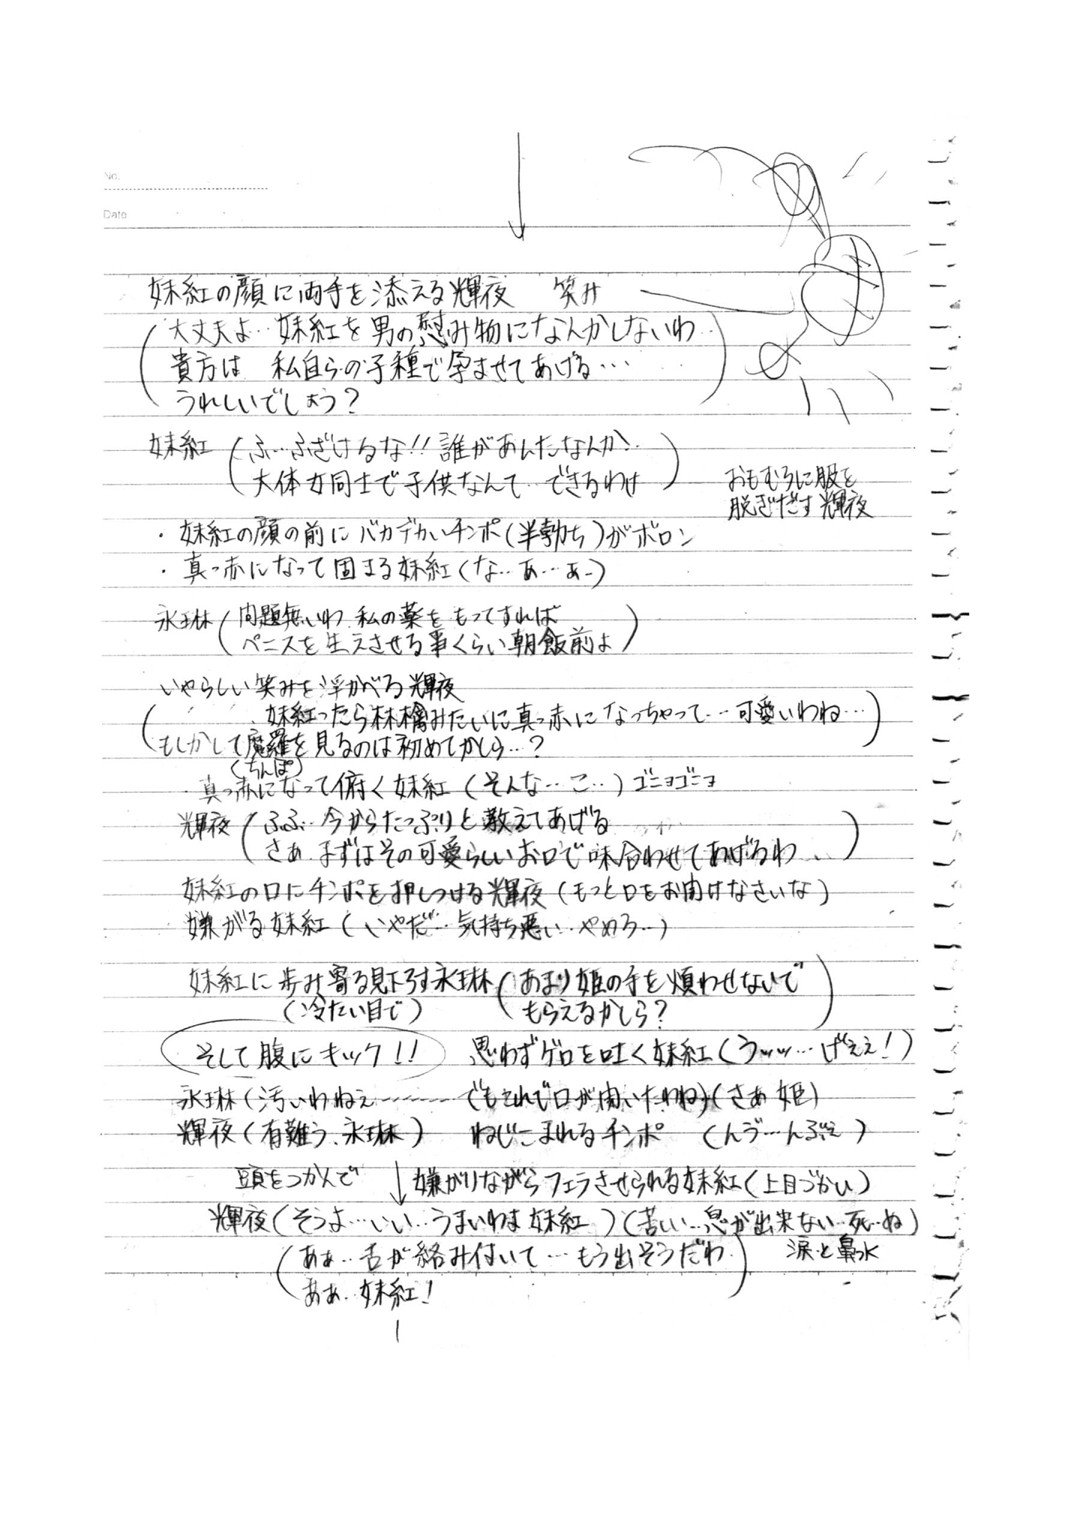 No.
Date
妹紅の顔に両手を添える輝夜 笑み
(大丈夫よ‥妹紅を男の慰み物になんかしないわ‥
貴方は 私自らの子種で孕ませてあげる…
うれしいでしょう?)
妹紅(ふ…ふざけるな!!誰があんたなんか!‥
大体女同士で子供なんて‥できるわけ)
おもむろに服を
脱ぎだす輝夜
・妹紅の顔の前にバカデカいチンポ(半勃ち)がボロン
・真っ赤になって固まる妹紅(な‥あ…あ-)
永琳(問題無いわ 私の薬をもってすれば
ペニスを生えさせる事くらい朝飯前よ)
いやらしい笑みを浮かべる輝夜
(妹紅ったら林檎みたいに真っ赤になっちゃって…可愛いわね…
もしかして魔羅を見るのは初めてかしら…?)
(ちんぽ)
・真っ赤になって俯く妹紅(そんな…こ‥)ゴニョゴニョ
輝夜(ふふ‥今からたっぷりと教えてあげる
さあ まずはその可愛らしいお口で味合わせてあげるわ‥)
妹紅の口にチンポを押しつける輝夜(もっと口をお開けなさいな)
嫌がる妹紅(いやだ…気持ち悪い‥やめろ‥)
妹紅に歩み寄る見下ろす永琳(あまり姫の手を煩わせないで
(冷たい目で) もらえるかしら?)
そして腹にキック!! 思わずゲロを吐く妹紅(うッッ…げぇぇ!)
永琳(汚いわねぇ……でもこれで口が開いたわね)(さあ 姫)
輝夜(有難う、永琳) ねじこまれるチンポ (んヴ…んぶぇ)
頭をつかんで ↓ 嫌がりながらフェラさせられる妹紅(上目づかい)
輝夜(そうよ…いい‥うまいわよ 妹紅)(苦しい…息が出来ない…死‥ぬ)
(あぁ‥舌が絡み付いて…もう出そうだわ 涙と鼻水
あぁ‥妹紅!)